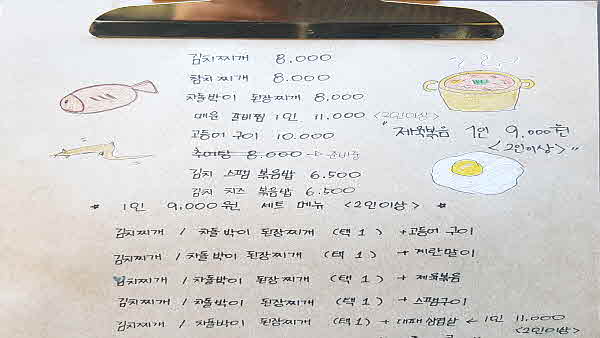 김치찌개 8.000
참치찌개 8.000
차돌박이 된장찌개 8.000
매운 1인 11.000 <2인이상>
고등어 구이 10.000
"제육볶음 1인 9.000원
<2인이상>"
추어탕 8.000 → 준비중
김치 스팸 볶음밥 6.500
김치 치즈 볶음밥 6.500
* 1인 9.000원 세트 메뉴 <2인이상> *
김치찌개 / 차돌박이 된장찌개 (택 1) + 고등어 구이
김치찌개 / 차돌박이 된장찌개 (택 1) + 계란말이
김치찌개 / 차돌박이 된장찌개 (택 1) + 제육볶음
김치찌개 / 차돌박이 된장찌개 (택 1) + 스팸구이
김치찌개 / 차돌박이 된장찌개 (택 1) + 대패삼겹살 ← 1인 11.000
<2인이상>